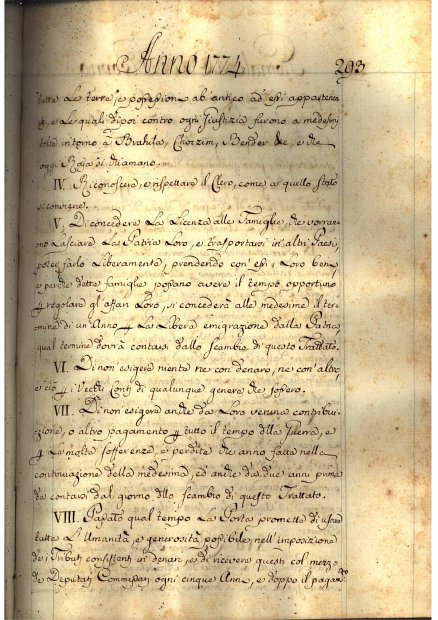 Anno 1774 293
tutte le terre, e possessioni ab' antico ad' essi appartenen
ti, e le quali dipoi contro ogni Giustizia furono a medesimi
tolte intorno à Brahila, Choczim, Bender &c, e che
oggi Raja si chiamano.
IV. Riconoscerà, e rispettare il Clero, come a quello stato
si conviene.
V. Di concedere La Licenza alle Famiglie, che vorran-
no Lasciare La Patria Loro, e trasportarsi in' altri Paesi,
poter farlo Liberamente, prendendo con' essi i Loro beni,
e perchè dette famiglie possano avere il tempo opportuno
ꝑ regolare gl' affari Loro, si concederà alle medesime il ter-
mine di un' Anno ꝑ La Libera emigrazione dalla Patria,
qual termine dovrà contarsi dallo scambio di questo Trattato.
VI. Di non esigere niente ne con denaro, ne con' altro,
e ciò ꝑ i Vecchj Conti di qualunque genere che fossero.
VII. Di non esigere anche da Loro veruna contribu-
izione, o altro pagamento ꝑ tutto il tempo dlla Guerra, e
ꝑ Le molte sofferenze, e perdite che anno fatte nella
continuazione della medesima, ed' anche da due anni prima
da contarsi dal giorno dllo scambio di questo Trattato.
VIII. Passato qual tempo La Porta promette di usare
tutta L' Umanità, e generosità possibile nell' imposizione
de i Tributi consistenti in denari, e di ricevere questi col mezzo
de Deputati Commissarj ogni cinque Anni, e doppo il pagam.to